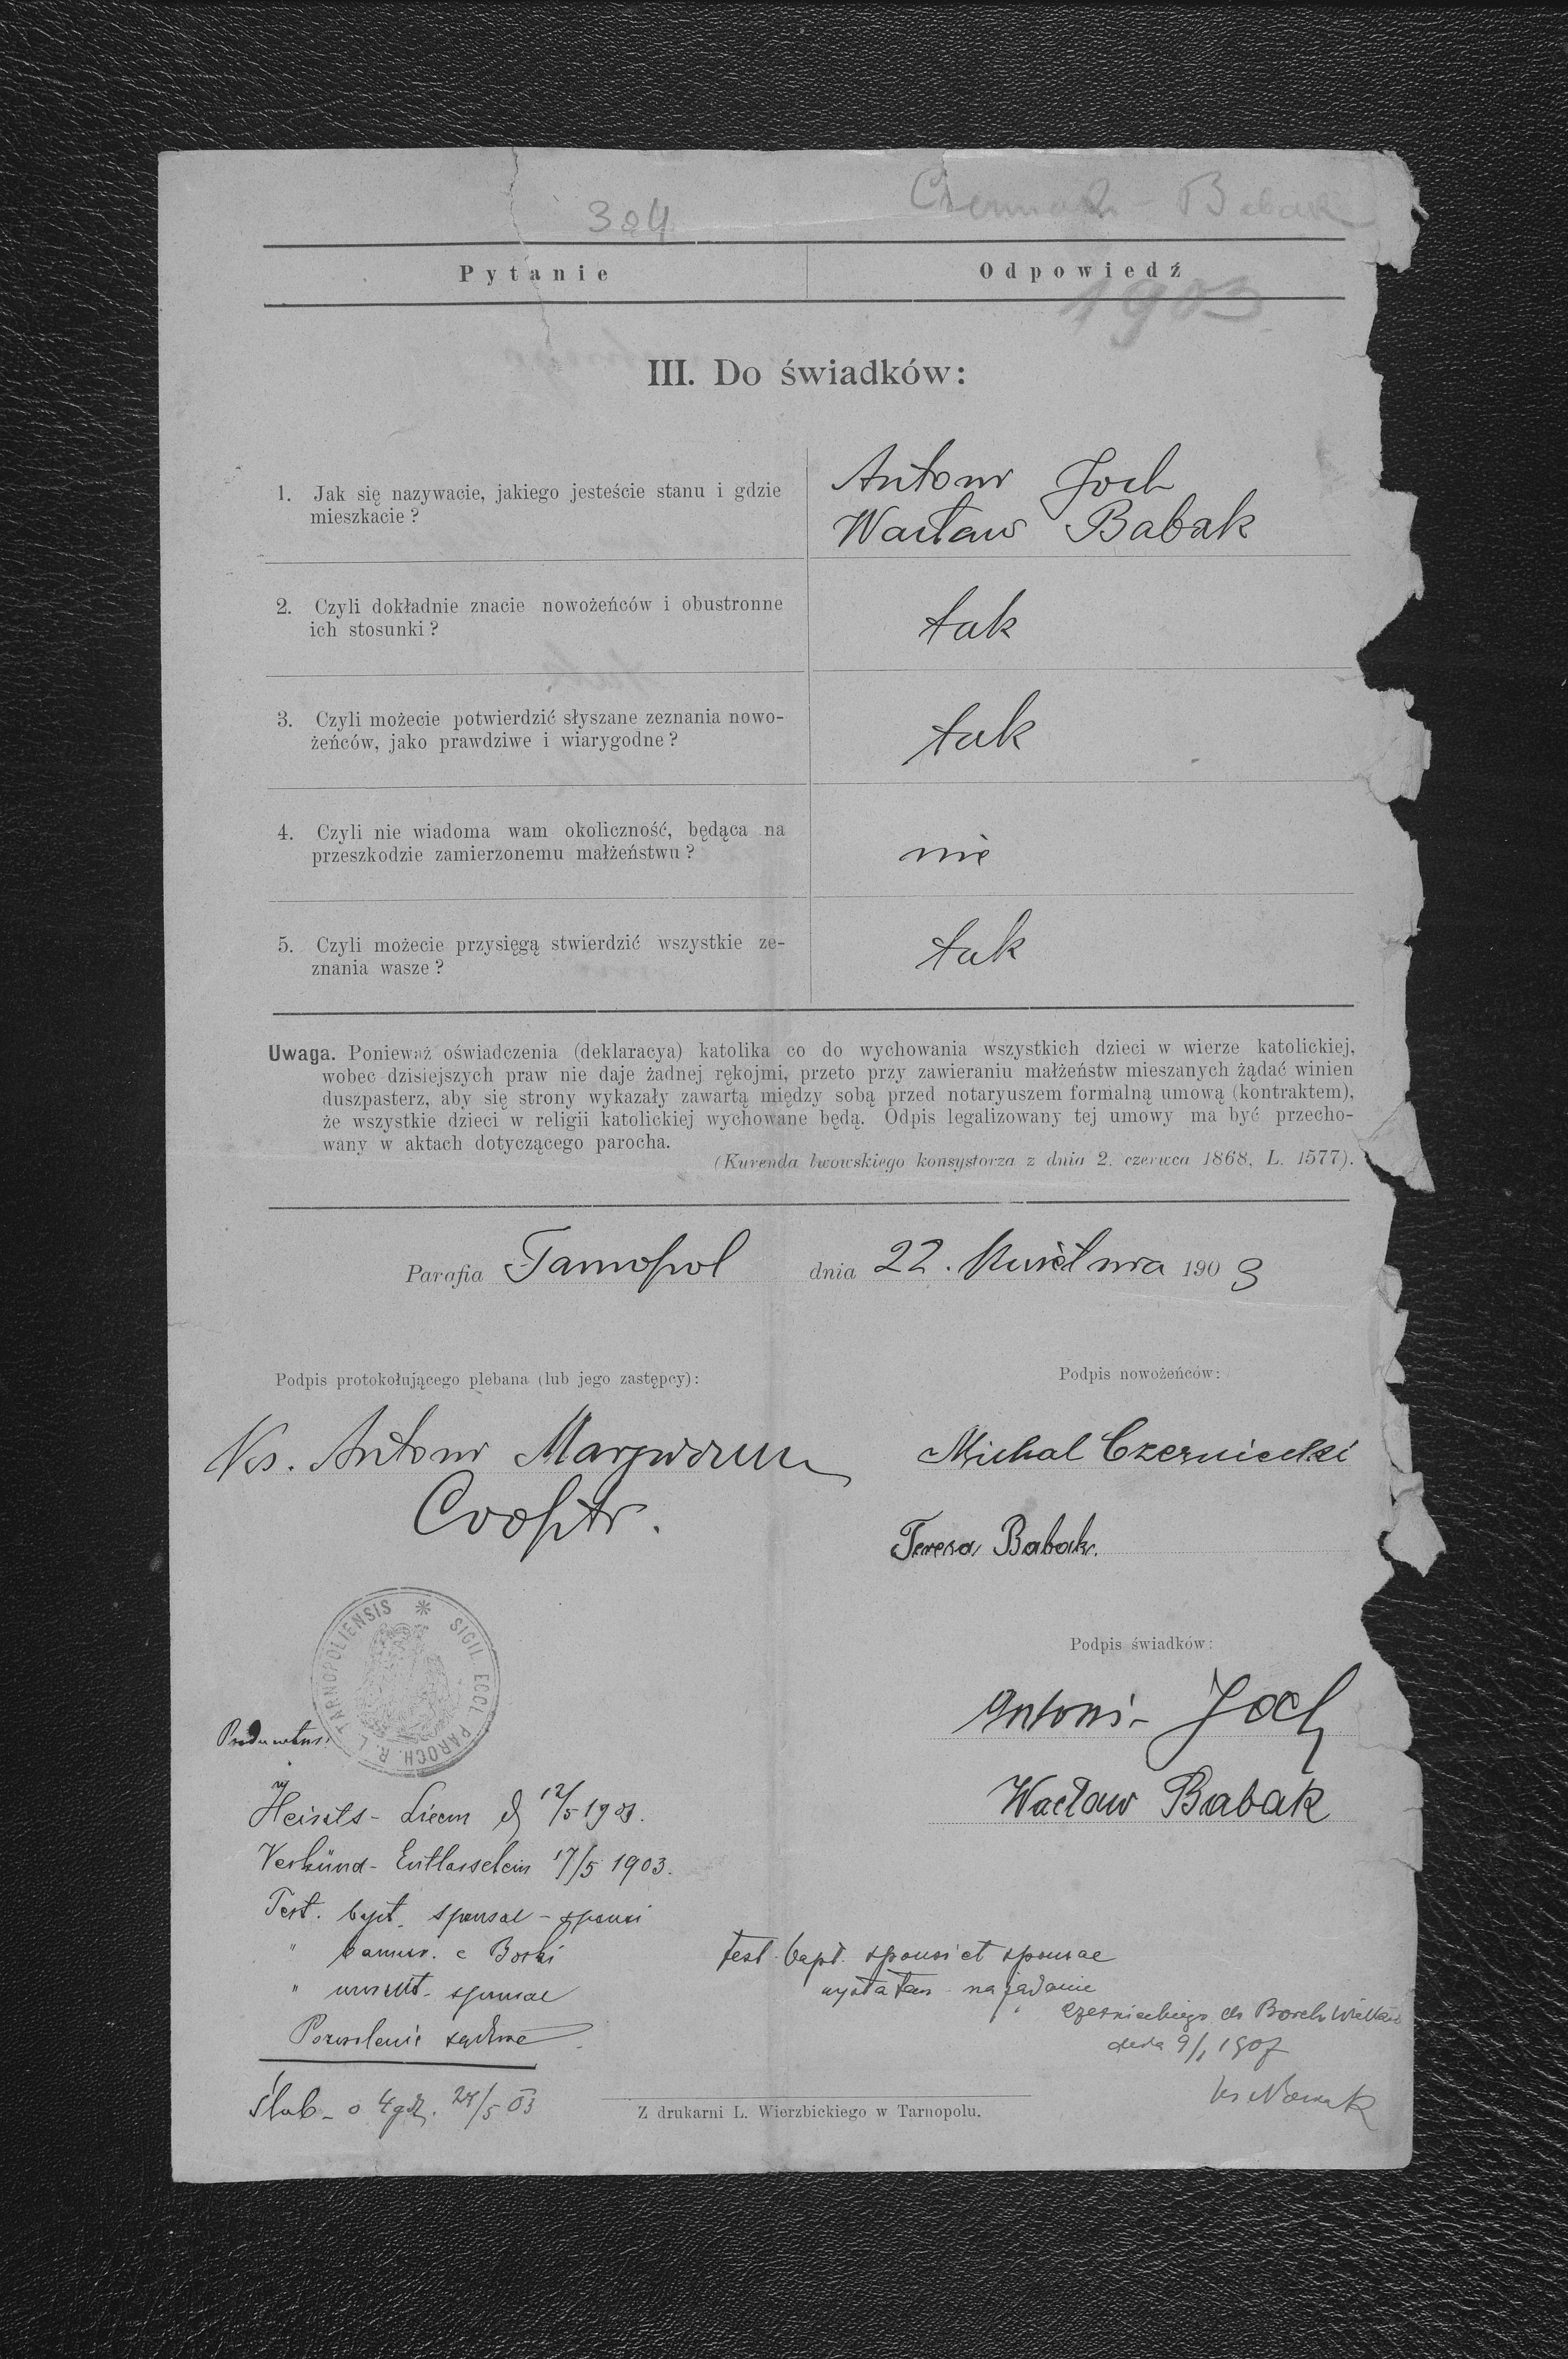 324
Babak
Pytanie
Odpowiedź
1903
III. Do świadków:
1. Jak się nazywacie, jakiego jesteście stanu i gdzie
mieszkacie?
Antoni Joch
Wacław Babak
2. Czyli dokładnie znacie nowożeńców i obustronne
ich stosunki?
tak
3. Czyli możecie potwierdzić słyszane zeznania nowo-
żeńców, jako prawdziwe i wiarygodne?
tak
4. Czyli nie wiadoma wam okoliczność, będąca na
przeszkodzie zamierzonemu małżeństwu?
nie
5. Czyli możecie przysięgą stwierdzić wszystkie ze-
znania wasze?
tak
Uwaga. Ponieważ oświadczenia (deklaracya) katolika co do wychowania wszystkich dzieci w wierze katolickiej,
wobec dzisiejszych praw nie daje żadnej rękojmi, przeto przy zawieraniu małżeństw mieszanych żądać winien
duszpasterz, aby się strony wykazały zawartą między sobą przed notaryuszem formalną umową (kontraktem),
że wszystkie dzieci w religii katolickiej wychowane będą. Odpis legalizowany tej umowy ma być przecho-
wany w aktach dotyczącego parocha.
(Kurenda lwowskiego konsystorza z dnia 2. czerwca 1868, L. 1577).
Parafia Tarnopol dnia 22. Kwietnia 1903
Podpis protokołującego plebana (lub jego zastępcy):
Podpis nowożeńców:
Ks. Antoni
Cooptr.
Michał Czerniecki
Teresa Babak.
SIGIL. ECCL. PAROCH. R. L. TARNOPOLIENSIS
Podpis świadków:
Antoni Joch
Wacław Babak
Heirats- 12/5 1903.
Verkünd- Entlasschein 17/5 1903.
Test. bapt. sponsae - sponsi
" bannor. e Borki
" sponsae
Pozwolenie sądowe
Ślub - o 4 gdz. 24/5 03
test. bapt. sponsi et sponsae
wysłałem na żądanie
Czernieckiego do Borek Wielkich
dnia 9/1 1907
ks Nowak
Z drukarni L. Wierzbickiego w Tarnopolu.